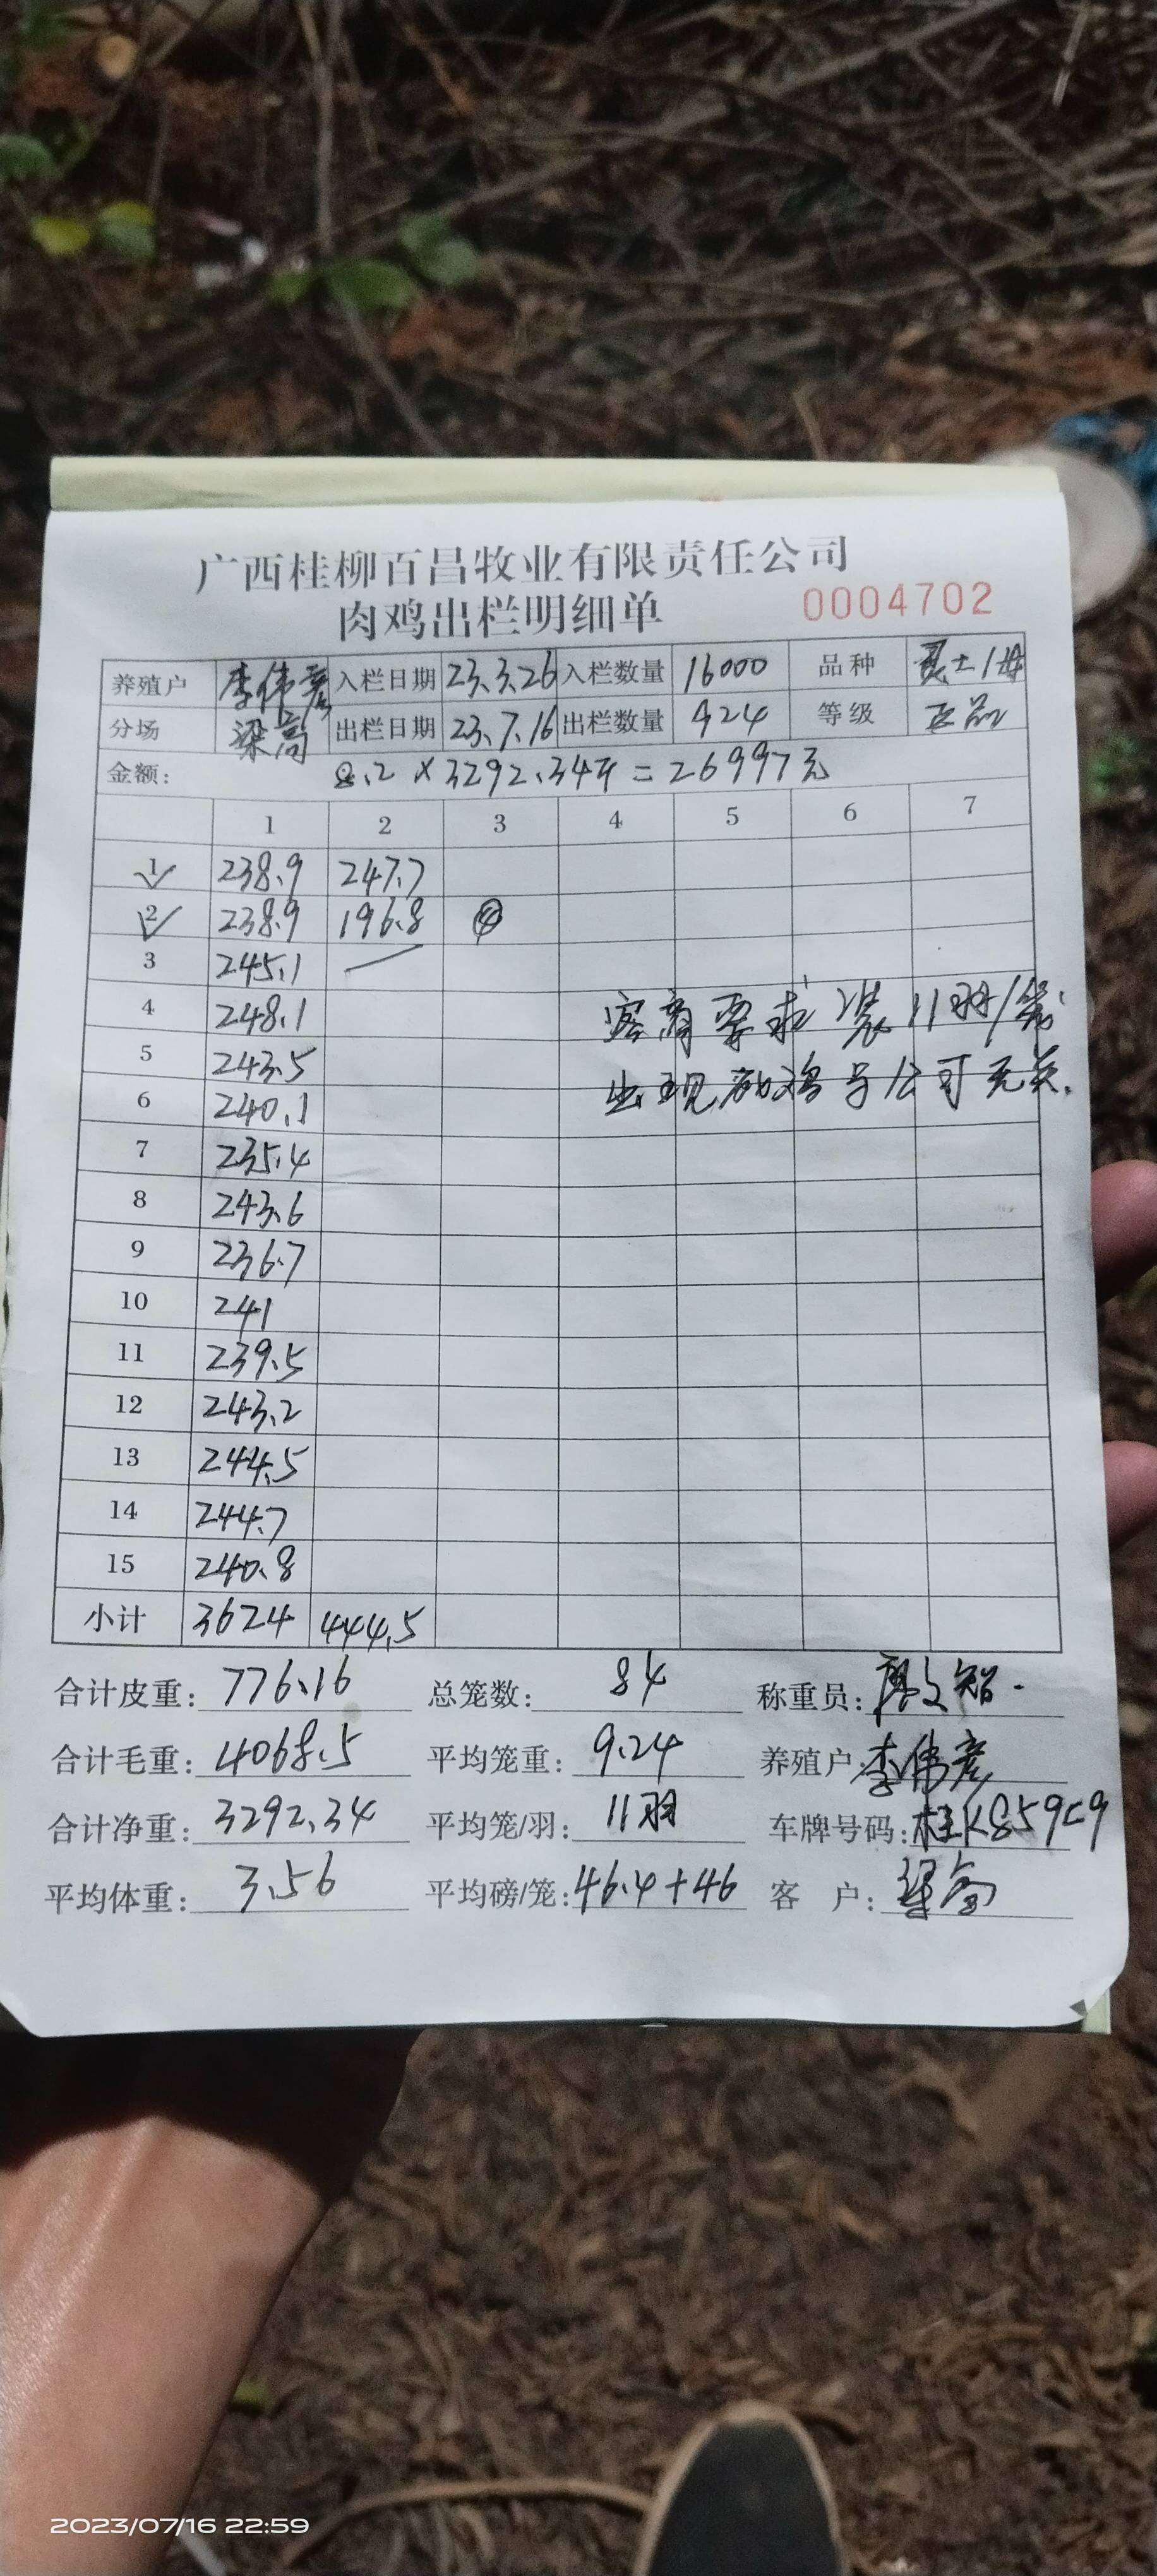 广西桂柳百昌牧业有限责任公司
肉鸡出栏明细单 0004702
养殖户 李伟彦 入栏日期 23.3.26 入栏数量 16000 品种 土1母
分场 梁高 出栏日期 23.7.16 出栏数量 924 等级 正品
金额: 8.2×3292.34斤=26997元
1 2 3 4 5 6 7
1 238.9 247.7
2 238.9 196.8 ④
3 245.1
4 248.1 客商要求装11羽/笼
5 243.5
6 240.1 出现死鸡与公司无关.
7 235.4
8 243.6
9 236.7
10 241
11 239.5
12 243.2
13 244.5
14 244.7
15 240.8
小计 3624 444.5
合计皮重: 776.16 总笼数: 84 称重员: 文智.
合计毛重: 4068.5 平均笼重: 9.24 养殖户 李伟彦
合计净重: 3292.34 平均笼/羽: 11羽 车牌号码: 桂K859C9
平均体重: 3.56 平均磅/笼: 46.4+46 客 户:
2023/07/16 22:59